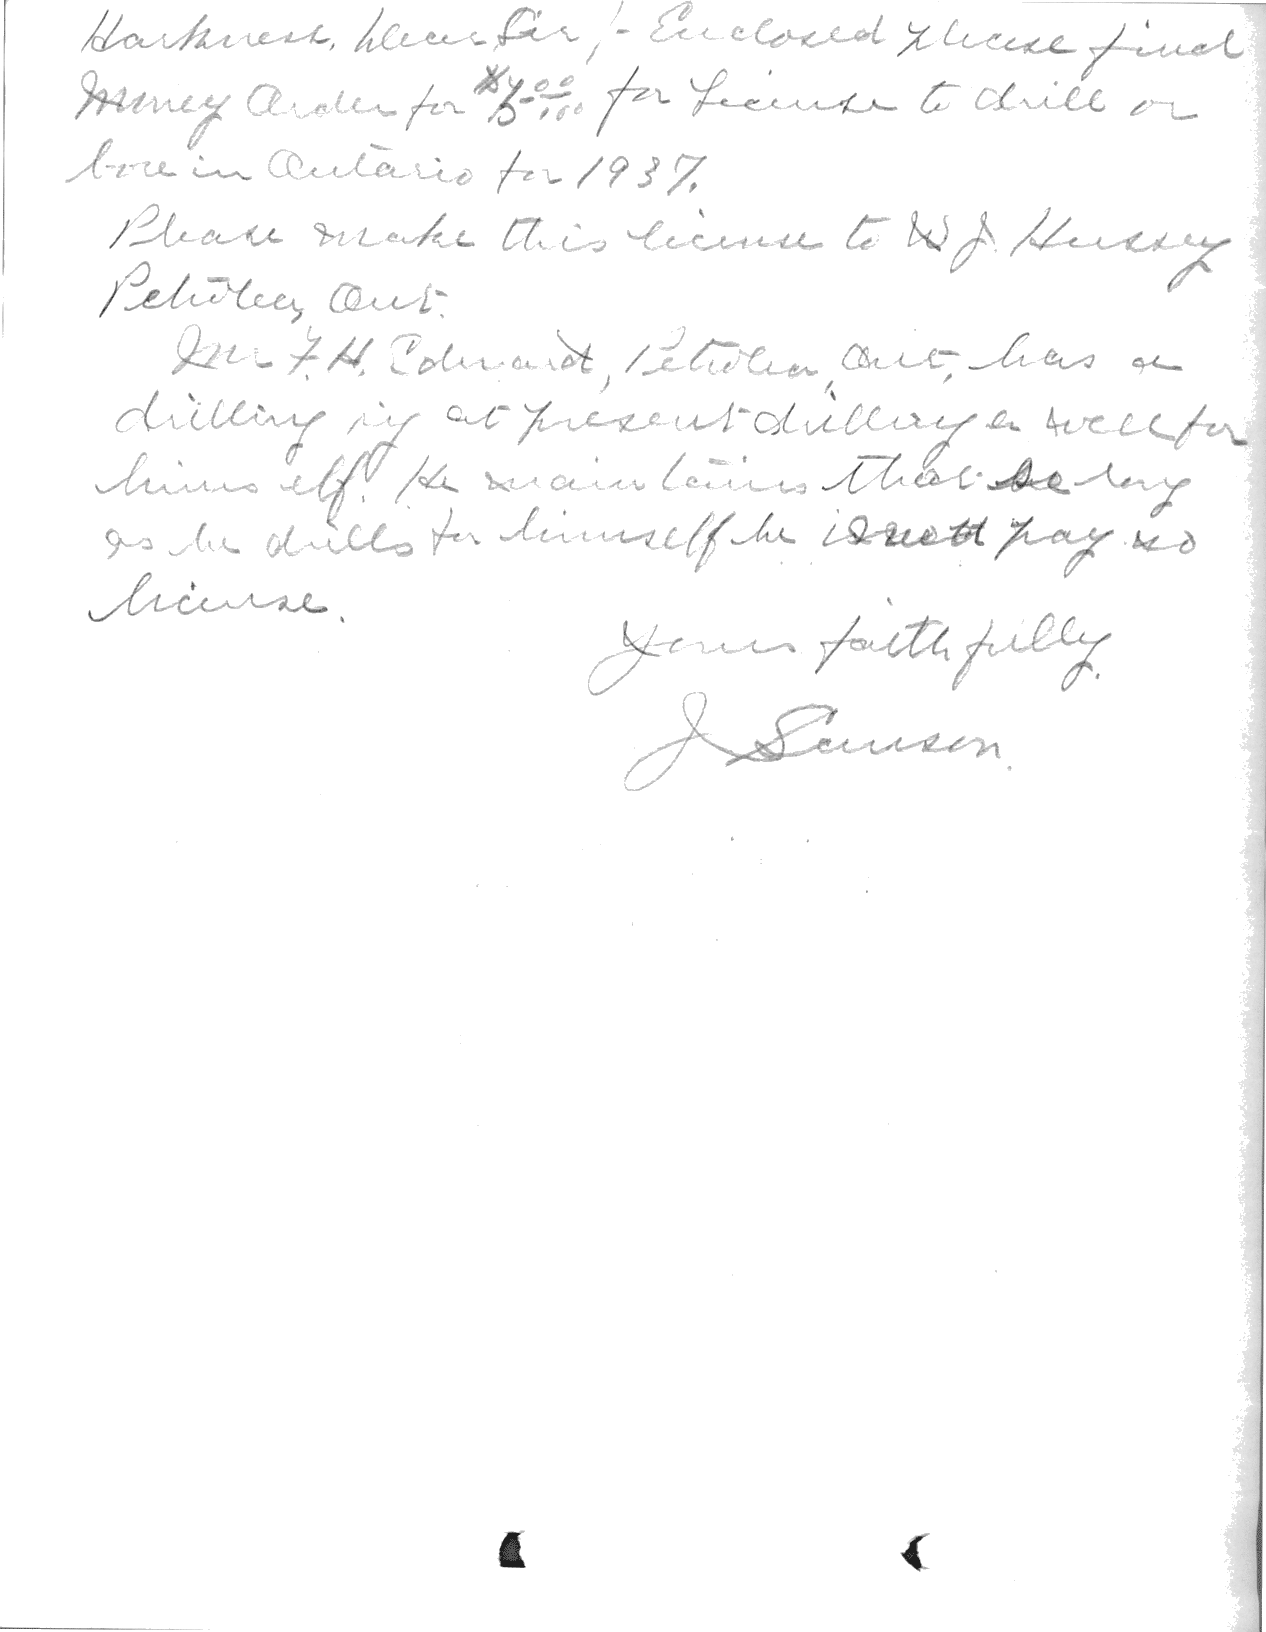 Harkness. Dear Sir/- Enclosed please find
Money Order for $5.00/100 for License to drill or
bore in Ontario for 1937.
Please make this license to W J. Hussey
Petrolea, Ont.
Mr F. H. Edward, Petrolea, Ont, has a
drilling rig at present drilling a well for
himself. He maintains that so long
as he drills for himself he pay no
license.
Yours faithfully.
J Samson.